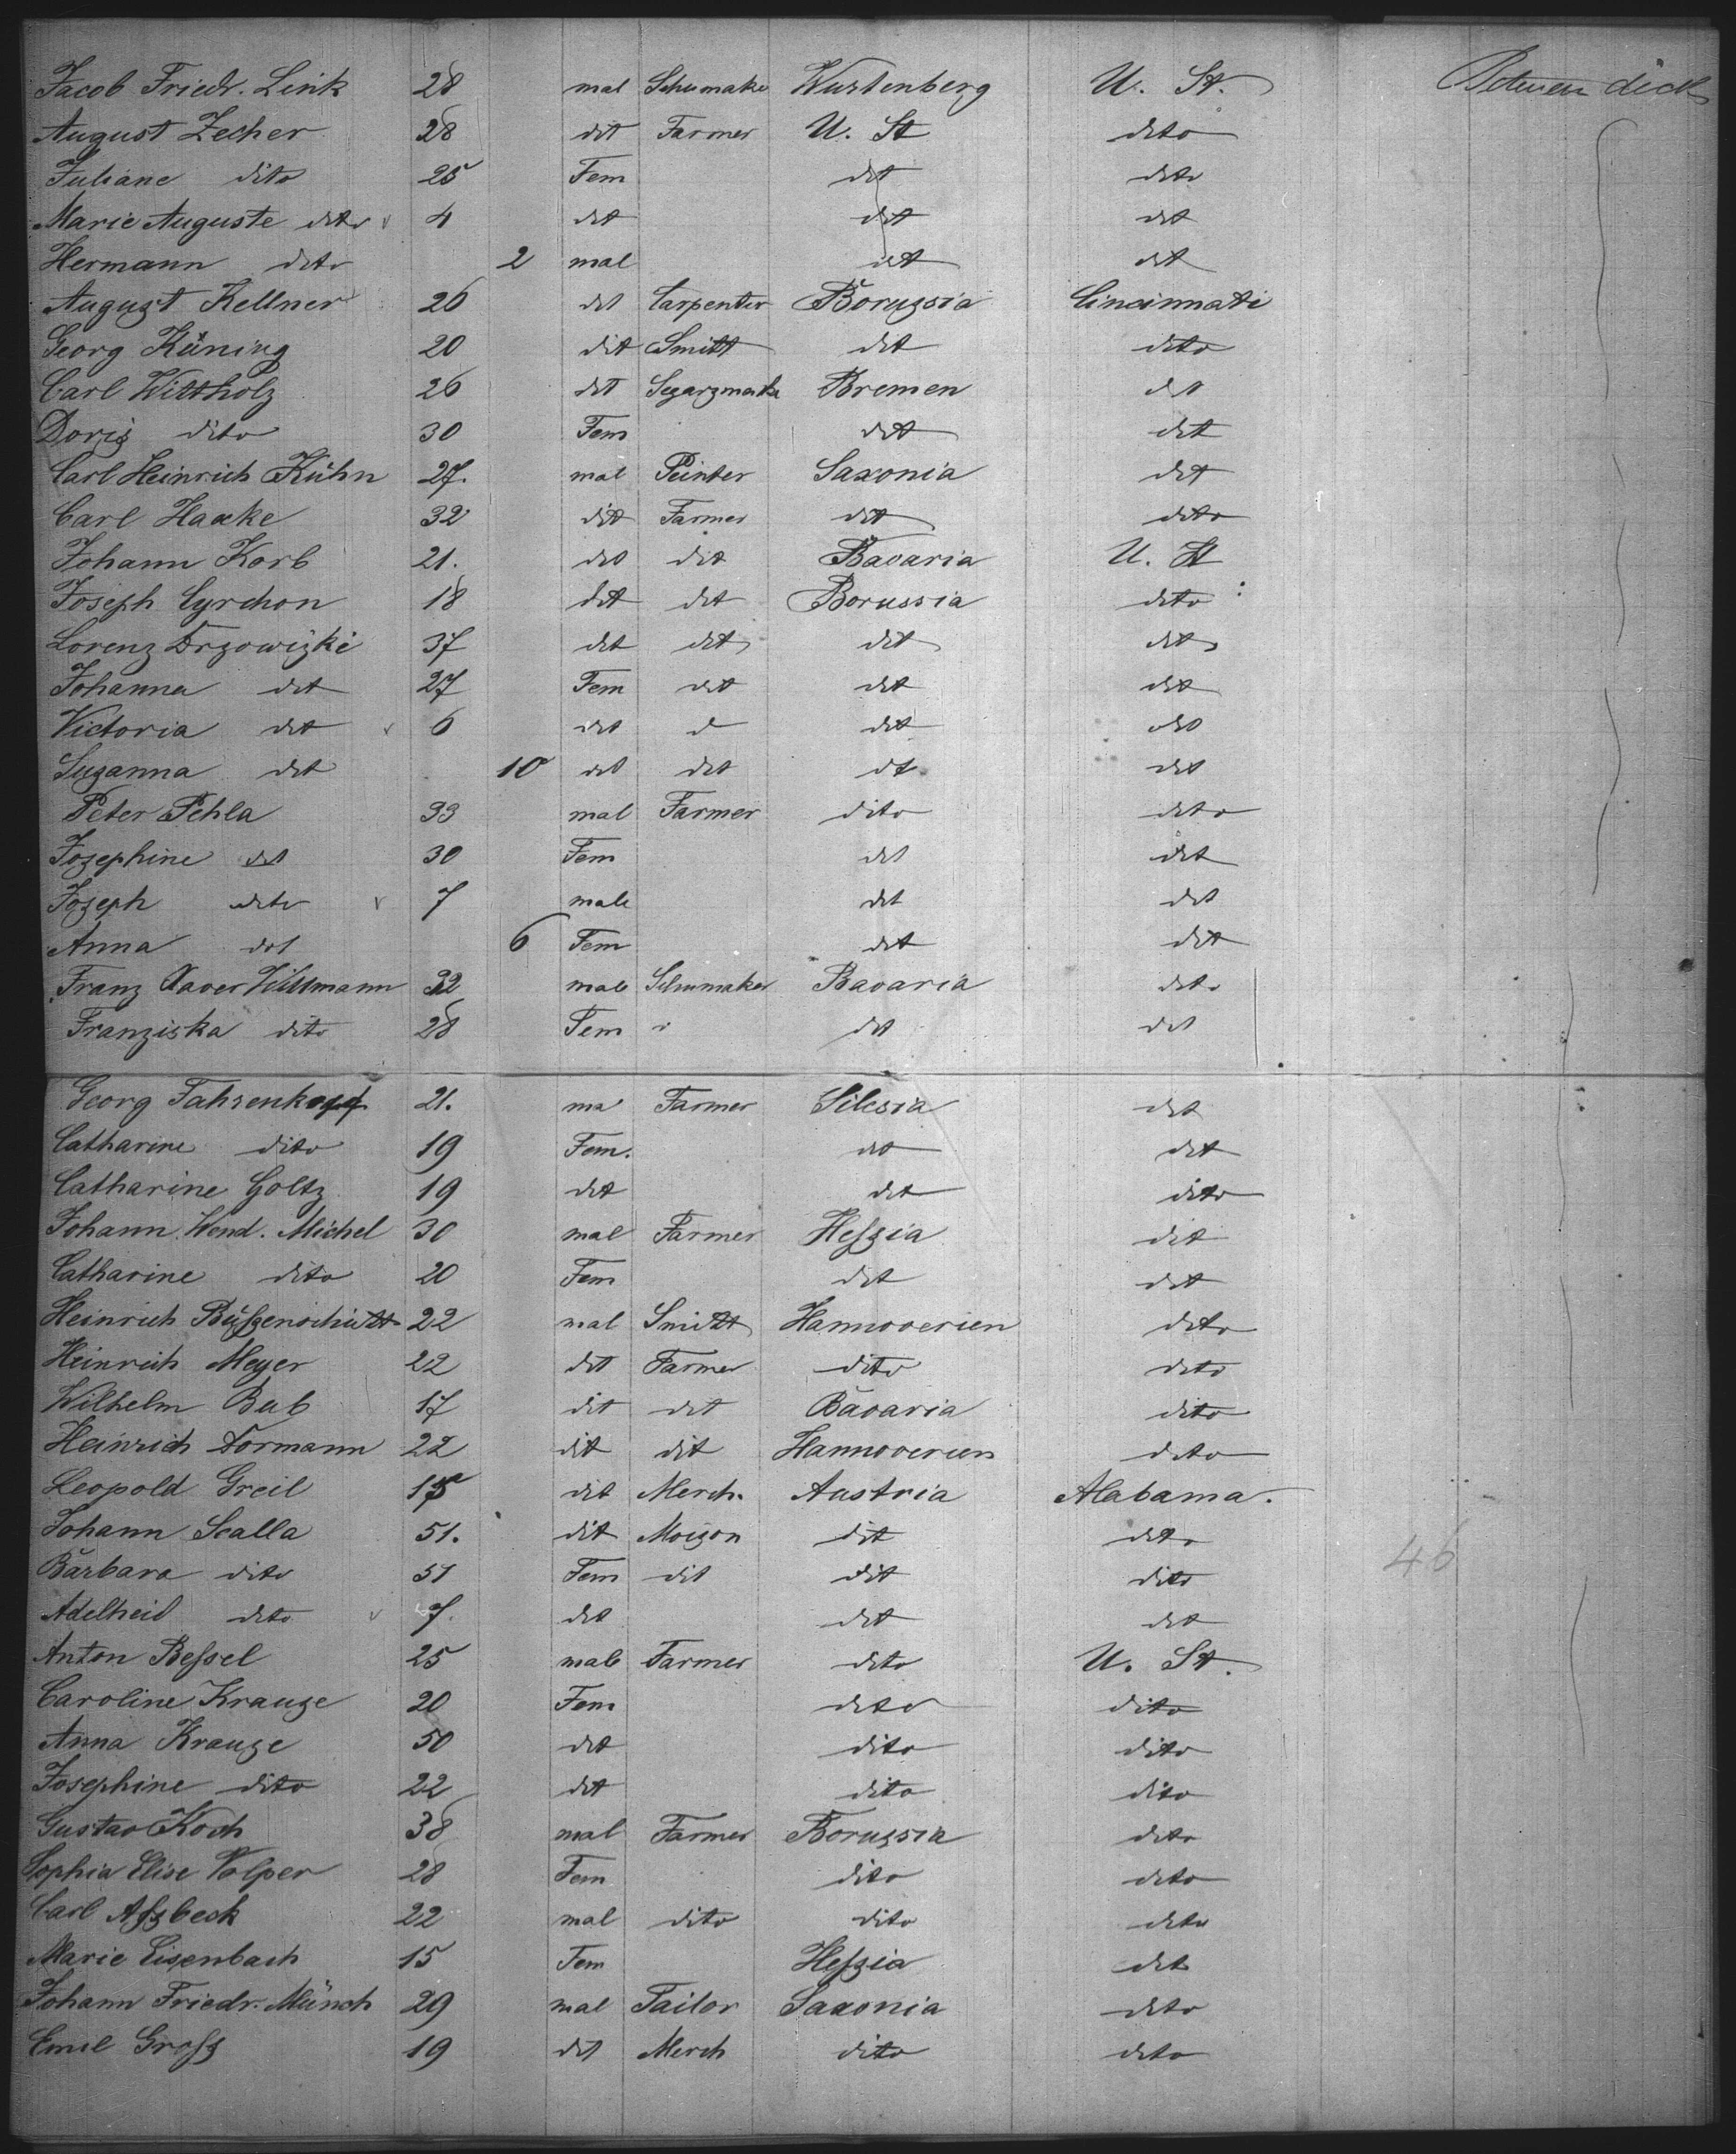 Jacob Friedr. Link 28 mal Schumaker Wurtenberg U. St. Betwen dick
August Zecher 28 dit Farmer U. St dito
Juliane dito 25 Fem det dito
Marie Auguste dito 4 det det det
Hermann dito 2 mal det det
August Kellner 26 det Carpenter Borussia Cincinnati
Georg Küning 20 dit Smitt det dito
Carl Wittholz 26 det Segarzmaker Bremen det
Doris dito 30 Fem det det
Carl Heinrich Kühn 27. mal Peinter Saxonia det
Carl Hacke 32 dit Farmer det dito
Johann Korb 21. det dit Bavaria U. St
Joseph Cyrchon 18 det det Borussia dito
Lorenz Drzowizki 37 det det det det
Johanna det 27 Fem det det det
Victoria det 6 det d det det
Suzanna det 10 det det dt det
Peter Pehla 33 mal Farmer dito dito
Josephine det 30 Fem det det
Joseph dito 7 male det det
Anna det 6 Fem det dit
Franz Xaver Willmann 32 male Schumaker Bavaria dito
Franziska dito 28 Fem det det
Georg Fahrenkopf 21. ma Farmer Silesia det
Catharine dito 19 Fem. det det
Catharine Goltz 19 det det dito
Johann Wend. Michel 30 mal Farmer Heßia dit
Catharine dito 20 Fem det det
Heinrich Büßenschütt 22 mal Smitt Hannoverien dito
Heinrich Meyer 22 det Farmer dito dito
Wilhelm Bub 17 dit det Bavaria dito
Heinrich Dormann 22 dit dit Hannoverien dito
Leopold Greil 15 dit Merch. Austria Alabama.
Johann Scalla 51. dit Moison dit dito
Barbara dito 51 Fem dit dit dito 46
Adelheid dito 7. det det det
Anton Beßel 25 male Farmer dito U. St.
Caroline Krause 20 Fem dito dito
Anna Krause 50 det dito dito
Josephine dito 22 det dito dito
Gustav Koch 38 mal Farmer Borussia dito
Sophia Elise Volper 28 Fem dito dito
Carl Aßbeck 22 mal dito dito dito
Marie Eisenbach 15 Fem Heßia det
Johann Friedr. Münch 29 mal Tailor Saxonia dito
Emil Groß 19 det Merch dito dito